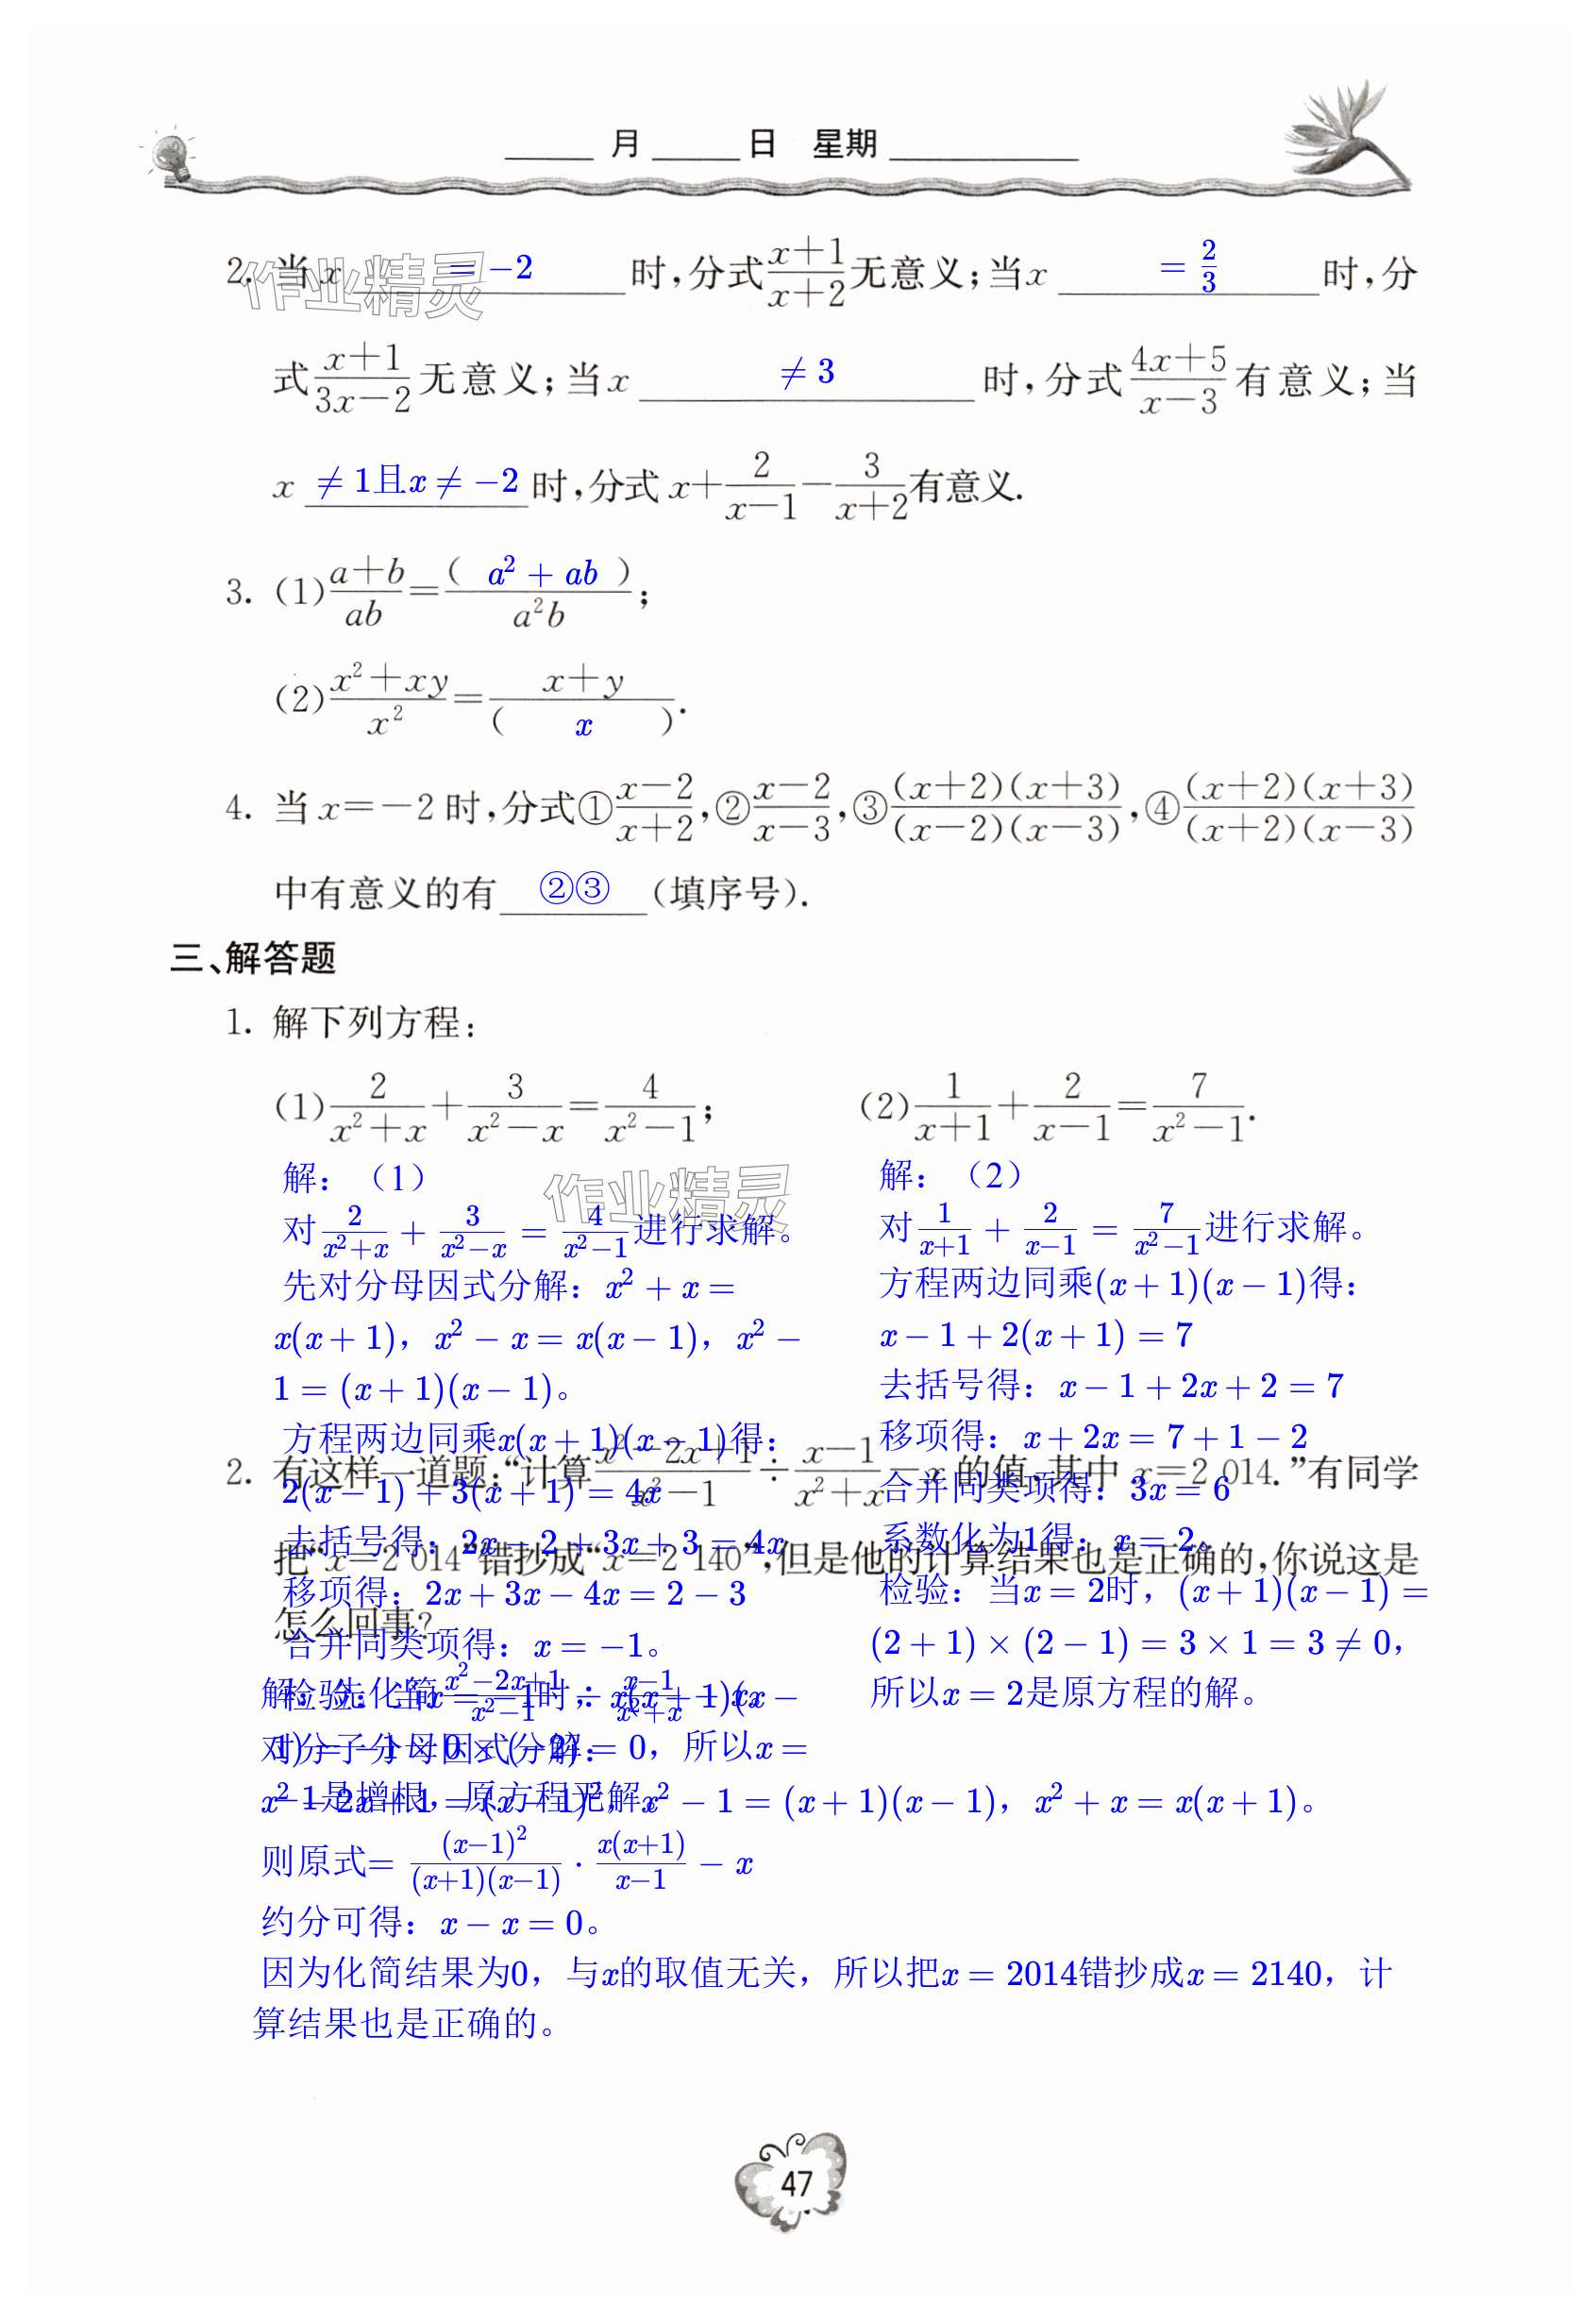 ____月____日 星期________
2. 当 x = −2 时,分式 (x+1)/(x+2) 无意义;当 x = 2/3 时,分
式 (x+1)/(3x−2) 无意义;当 x ≠ 3 时,分式 (4x+5)/(x−3) 有意义;当
x ≠ 1且x ≠ −2 时,分式 x+2/(x−1)−3/(x+2) 有意义.
3. (1) (a+b)/ab=( a² + ab )/a²b;
(2) (x²+xy)/x²=(x+y)/( x ).
4. 当 x=−2 时,分式① (x−2)/(x+2),② (x−2)/(x−3),③ (x+2)(x+3)/(x−2)(x−3),④ (x+2)(x+3)/(x+2)(x−3)
中有意义的有 ②③ (填序号).
三、解答题
1. 解下列方程:
(1) 2/(x²+x)+3/(x²−x)=4/(x²−1); (2) 1/(x+1)+2/(x−1)=7/(x²−1).
解:(1)
对 2/(x²+x) + 3/(x²−x) = 4/(x²−1) 进行求解。
先对分母因式分解:x² + x =
x(x + 1),x² − x = x(x − 1),x² −
1 = (x + 1)(x − 1)。
方程两边同乘x(x + 1)(x − 1)得:
2(x − 1) + 3(x + 1) = 4x
去括号得:2x − 2 + 3x + 3 = 4x
移项得:2x + 3x − 4x = 2 − 3
合并同类项得:x = −1。
检验:当x = −1时,x(x + 1)(x −
1) = −1 × 0 × (−2) = 0,所以x =
−1是增根,原方程无解。
解:(2)
对 1/(x+1) + 2/(x−1) = 7/(x²−1) 进行求解。
方程两边同乘(x + 1)(x − 1)得:
x − 1 + 2(x + 1) = 7
去括号得:x − 1 + 2x + 2 = 7
移项得:x + 2x = 7 + 1 − 2
合并同类项得:3x = 6
系数化为1得:x = 2。
检验:当x = 2时,(x + 1)(x − 1) =
(2 + 1) × (2 − 1) = 3 × 1 = 3 ≠ 0,
所以x = 2是原方程的解。
2. 有这样一道题:“计算 (x²−2x+1)/(x²−1)÷(x−1)/(x²+x)−x 的值,其中 x=2 014.”有同学
把“x=2 014”错抄成“x=2 140”,但是他的计算结果也是正确的,你说这是
怎么回事?
解:先化简 (x²−2x+1)/(x²−1) ÷ (x−1)/(x²+x) − x。
对分子分母因式分解:
x² − 2x + 1 = (x − 1)²,x² − 1 = (x + 1)(x − 1),x² + x = x(x + 1)。
则原式= (x−1)²/(x+1)(x−1) · x(x+1)/(x−1) − x
约分可得:x − x = 0。
因为化简结果为0,与x的取值无关,所以把x = 2014错抄成x = 2140,计
算结果也是正确的。
47
作业精灵
作业精灵